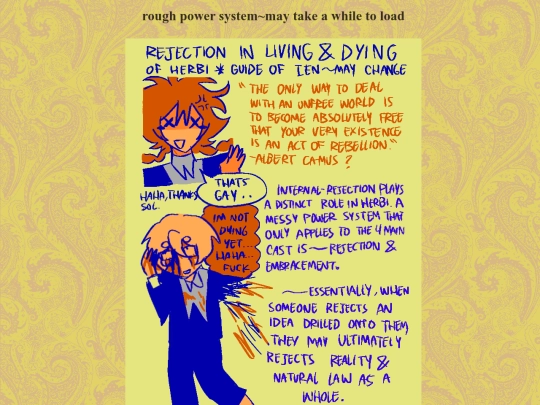 rough power system~may take a while to load
REJECTION IN LIVING & DYING
OF HERBI * GUIDE OF IEN~MAY CHANGE
"THE ONLY WAY TO DEAL
WITH AN UNFREE WORLD IS
TO BECOME ABSOLUTELY FREE
THAT YOUR VERY EXISTENCE
IS AN ACT OF REBELLION."
~ALBERT CAMUS?
HAHA, THANKS
SOL.
THATS
GAY..
IM NOT
DYING
YET...
HAHA..
FUCK
INTERNAL-REJECTION PLAYS
A DISTINCT ROLE IN HERBI. A
MESSY POWER SYSTEM THAT
ONLY APPLIES TO THE 4 MAIN
CAST IS~REJECTION &
EMBRACEMENT.
~ESSENTIALLY, WHEN
SOMEONE REJECTS AN
IDEA DRILLED ONTO THEM,
THEY MAY ULTIMATELY
REJECTS REALITY &
NATURAL LAW AS A
WHOLE.